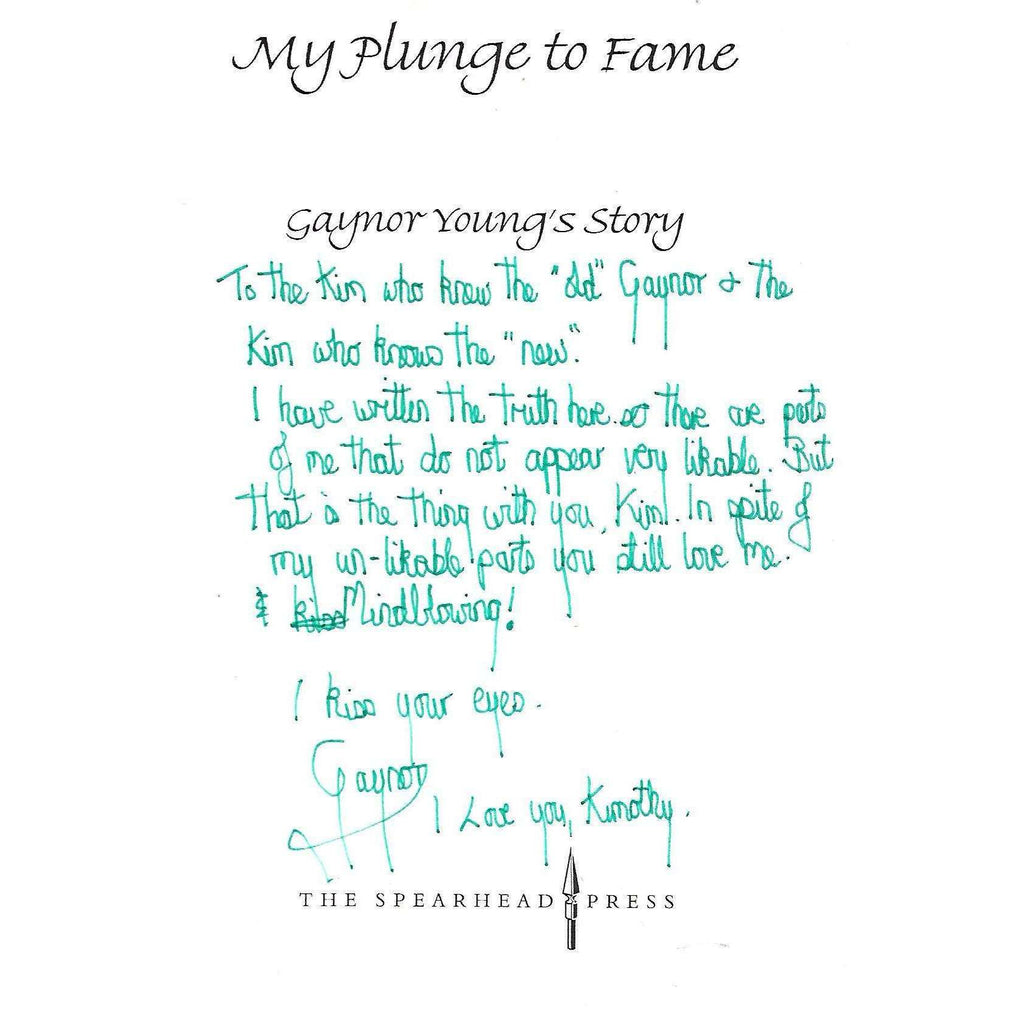 My Plunge to Fame
Gaynor Young's Story
To the Kim who knew the "old" Gaynor & the
Kim who knows the "new".
I have written the truth here so there are parts
of me that do not appear very likable. But
that is the thing with you, Kim. In spite of
my un-likable parts you still love me.
& kiss Mindblowing!
I kiss your eyes.
Gaynor
I Love you, Kimothy.
THE SPEARHEAD PRESS